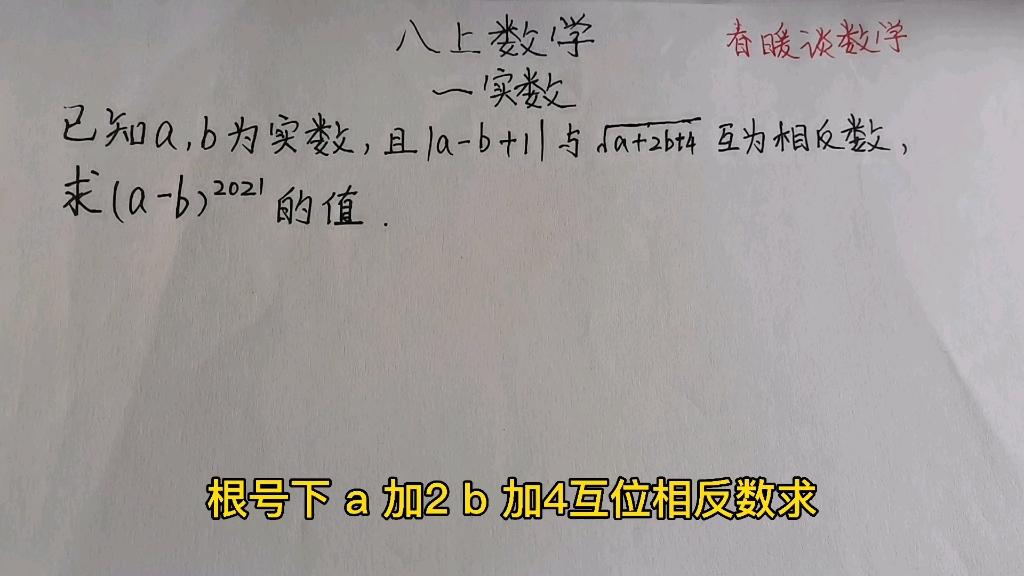 八上数学
春暖谈数学
一实数
已知a,b为实数,且|a-b+1|与√a+2b+4 互为相反数,
求(a-b)²⁰²¹的值.
根号下 a 加2 b 加4互位相反数求